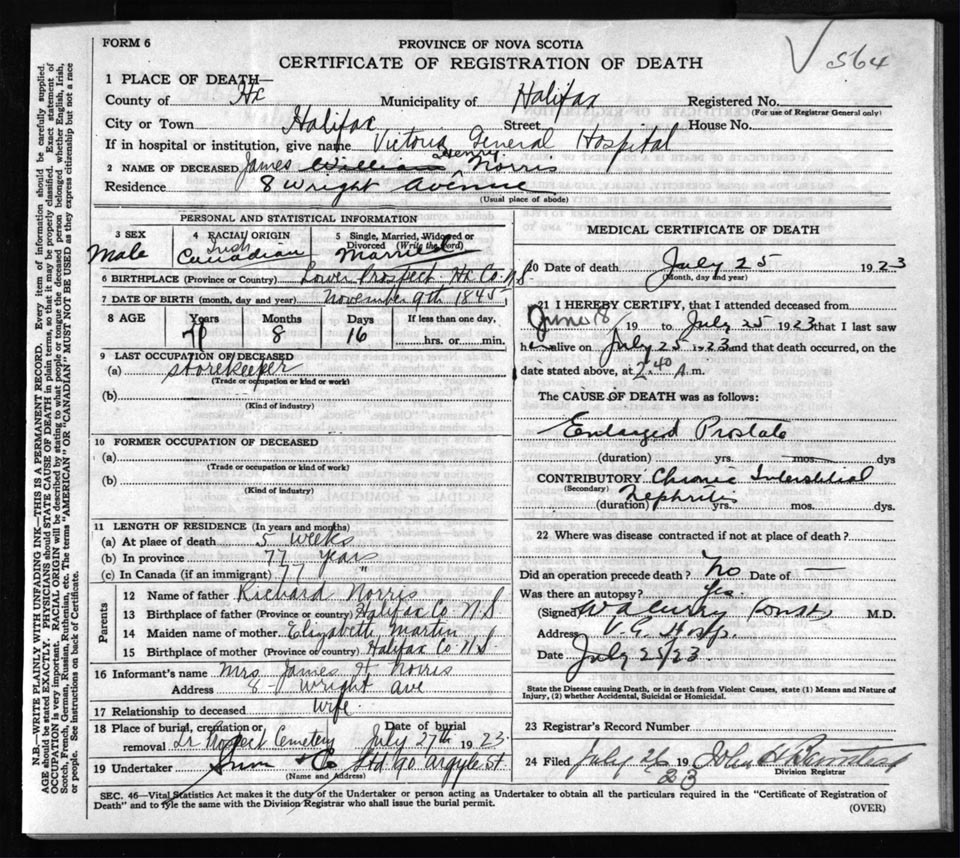 FORM 6
PROVINCE OF NOVA SCOTIA
CERTIFICATE OF REGISTRATION OF DEATH
√ 564
1 PLACE OF DEATH—
County of Hx Municipality of Halifax Registered No.
(For use of Registrar General only)
City or Town Halifax Street House No.
If in hospital or institution, give name Victoria General Hospital
2 NAME OF DECEASED James William Henry Norris
Residence 8 Wright Avenue
(Usual place of abode)
PERSONAL AND STATISTICAL INFORMATION
3 SEX 4 RACIAL ORIGIN 5 Single, Married, Widowed or Divorced (Write the word)
Male Irish Canadian Married
6 BIRTHPLACE (Province or Country) Lower Prospect Hx Co. N.S.
7 DATE OF BIRTH (month, day and year) November 9th 1845
8 AGE Years Months Days If less than one day,
8 16 hrs. or min.
9 LAST OCCUPATION OF DECEASED
(a) Storekeeper
(Trade or occupation or kind or work)
(b)
(Kind of industry)
10 FORMER OCCUPATION OF DECEASED
(a)
(Trade or occupation or kind or work)
(b)
(Kind of industry)
11 LENGTH OF RESIDENCE (In years and months)
(a) At place of death 5 weeks
(b) In province 77 years
(c) In Canada (if an immigrant) 77 "
Parents
12 Name of father Richard Norris
13 Birthplace of father (Province or country) Halifax Co N.S
14 Maiden name of mother Elizabeth Martin
15 Birthplace of mother (Province or country) Halifax Co N.S.
16 Informant's name Mrs James H Norris
Address 8 Wright Ave
17 Relationship to deceased Wife
18 Place of burial, cremation or removal Lr Prospect Cemetery Date of burial July 27th 1923.
19 Undertaker Snow & Co Ltd 90 Argyle St.
(Name and Address)
MEDICAL CERTIFICATE OF DEATH
20 Date of death July 25 1923
(Month, day and year)
21 I HEREBY CERTIFY, that I attended deceased from
June 18 19 to July 25 1923 that I last saw
h alive on July 25 1923 and that death occurred, on the
date stated above, at 2.40 A.m.
The CAUSE OF DEATH was as follows:
Enlarged Prostate
(duration) yrs. mos. dys
CONTRIBUTORY Chronic Interstitial
(Secondary) Nephritis
(duration) yrs. mos. dys.
22 Where was disease contracted if not at place of death?
Did an operation precede death? No Date of —
Was there an autopsy? Yes.
(Signed) W A Curry M.D.
Address V.G. Hosp.
Date July 25/23.
State the Disease causing Death, or in death from Violent Causes, state (1) Means and Nature of
Injury, (2) whether Accidental, Suicidal or Homicidal.
23 Registrar's Record Number
24 Filed July 26 1923 John H
Division Registrar
SEC. 46—Vital Statistics Act makes it the duty of the Undertaker or person acting as Undertaker to obtain all the particulars required in the "Certificate of Registration of
Death" and to file the same with the Division Registrar who shall issue the burial permit.
(OVER)
N.B.—WRITE PLAINLY WITH UNFADING INK—THIS IS A PERMANENT RECORD. Every item of information should be carefully supplied.
AGE should be stated EXACTLY. PHYSICIANS should STATE CAUSE OF DEATH in plain terms, so that it may be properly classified. Exact statement of
OCCUPATION is very important. RACIAL ORIGIN will be described by stating to what people or tongue the deceased person belonged whether English, Irish,
Scotch, French, German, Russian, Ruthenian, etc. The terms "AMERICAN" OR "CANADIAN" MUST NOT BE USED as they express citizenship but not a race
or people. See instructions on back of Certificate.